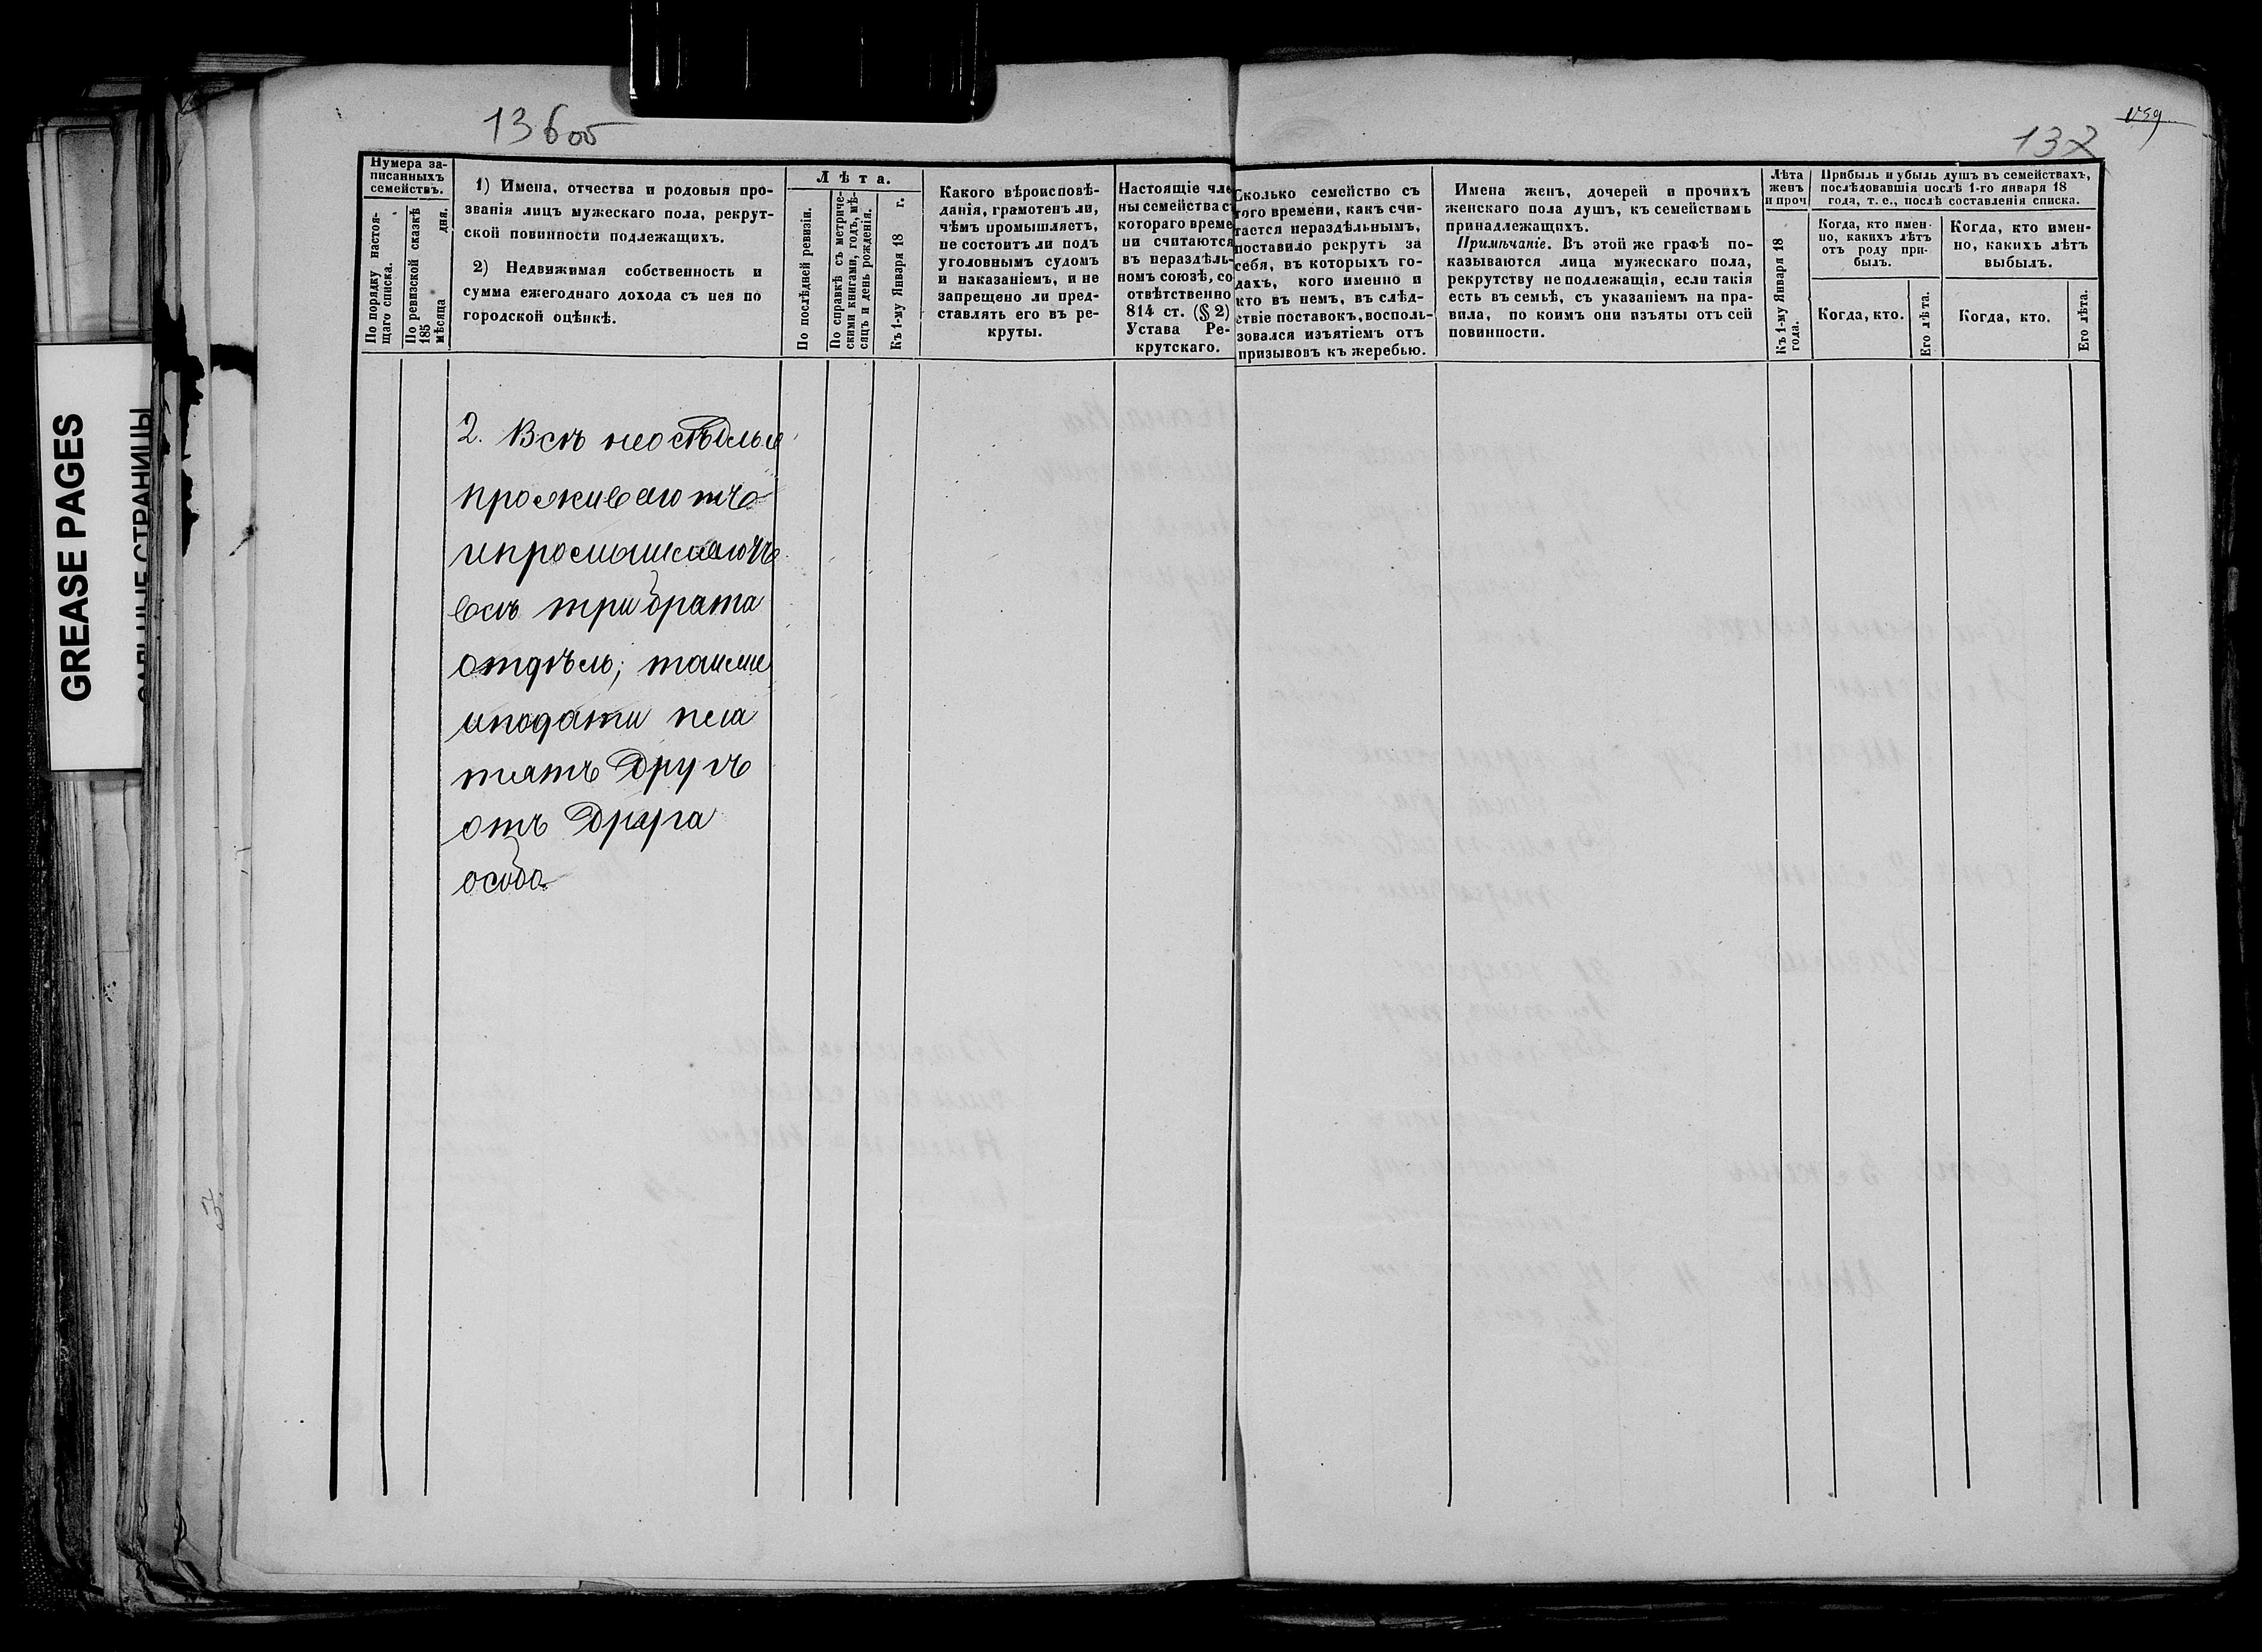 GREASE PAGES
САЛЬНЫЕ СТРАНИЦЫ
136об
137
Нумера за-
писанныхъ
семействъ.
По порядку настоя-
щаго списка.
По ревизской сказкѣ
185
мѣсяца дня.
1) Имена, отчества и родовыя про-
званія лицъ мужескаго пола, рекрут-
ской повинности подлежащихъ.
2) Недвижимая собственность и
сумма ежегоднаго дохода съ нея по
городской оцѣнкѣ.
Лѣта.
По послѣдней ревизіи.
По справкѣ съ метриче-
скими книгами, годъ, мѣ-
сяцъ и день рожденія.
Къ 1-му Января 18 г.
Какого вѣроисповѣ-
данія, грамотенъ ли,
чѣмъ промышляетъ,
не состоитъ ли подъ
уголовнымъ судомъ
и наказаніемъ, и не
запрещено ли пред-
ставлять его въ ре-
круты.
Настоящіе чле
ны семейства съ
котораго време
ни считаются
въ нераздѣль-
номъ союзѣ, со
отвѣтственно
814 ст. (§ 2)
Устава Ре-
крутскаго.
Сколько семейство съ
того времени, какъ счи-
тается нераздѣльнымъ,
поставило рекрутъ за
себя, въ которыхъ го-
дахъ, кого именно и
кто въ немъ, въ слѣд-
ствіе поставокъ, восполь-
зовался изъятіемъ отъ
призывовъ къ жеребью.
Имена женъ, дочерей и прочихъ
женскаго пола душъ, къ семействамъ
принадлежащихъ.
Примѣчаніе. Въ этой же графѣ по-
казываются лица мужескаго пола,
рекрутству не подлежащія, если такія
есть въ семьѣ, съ указаніемъ на пра-
вила, по коимъ они изъяты отъ сей
повинности.
Лѣта
женъ
и проч
Къ 1-му Января 18
года.
Прибыль и убыль душъ въ семействахъ,
послѣдовавшія послѣ 1-го января 18
года, т. е., послѣ составленія списка.
Когда, кто имен-
но, какихъ лѣтъ
отъ роду при-
былъ.
Когда, кто.
Его лѣта.
Когда, кто имен-
но, какихъ лѣтъ
выбылъ.
Когда, кто.
Его лѣта.
2. Всѣ
проживаютъ
и промышляютъ
всѣ три брата
отдѣль;
и подати пла
тятъ Другъ
отъ Друга
особо